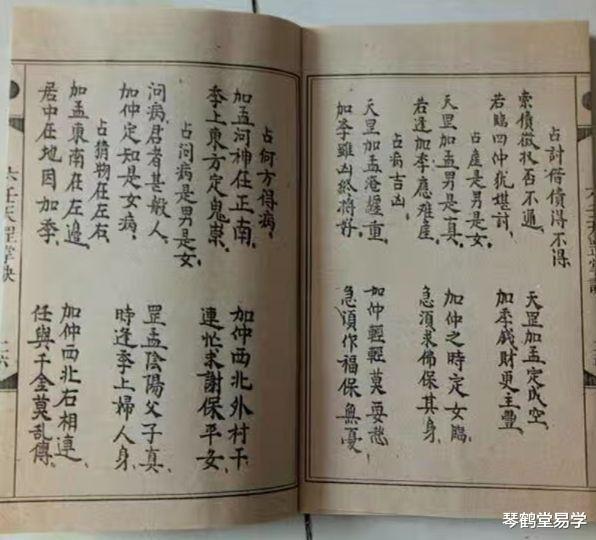 占討借債得不得
索債徵收否不通、天罡加孟定成空、
若臨四仲犹堪討、加季錢財更主豐、
占產是男是女
天罡加孟男是真、加仲之時定女臨、
若逢加季應难產、急須求佛保其身、
占病吉凶
天罡加孟淹纏重、加仲輕輕莫要愁
加季雖凶終將好、急須作福保無憂、
占何方得病、
加孟河神在正南、加仲西北外村干
季上東方定鬼祟、連忙求謝保平安、
占問病是男是女、
問病君者甚敏人、罡孟陰陽父子真、
加仲定知是女病、時逢季上婦人身、
占猜物在左右、
加孟東南在左邊、加仲西北右相連、
居中在地因加季、任與千金莫乱傳、
六壬天罡掌訣 二六
琴鹤堂易学